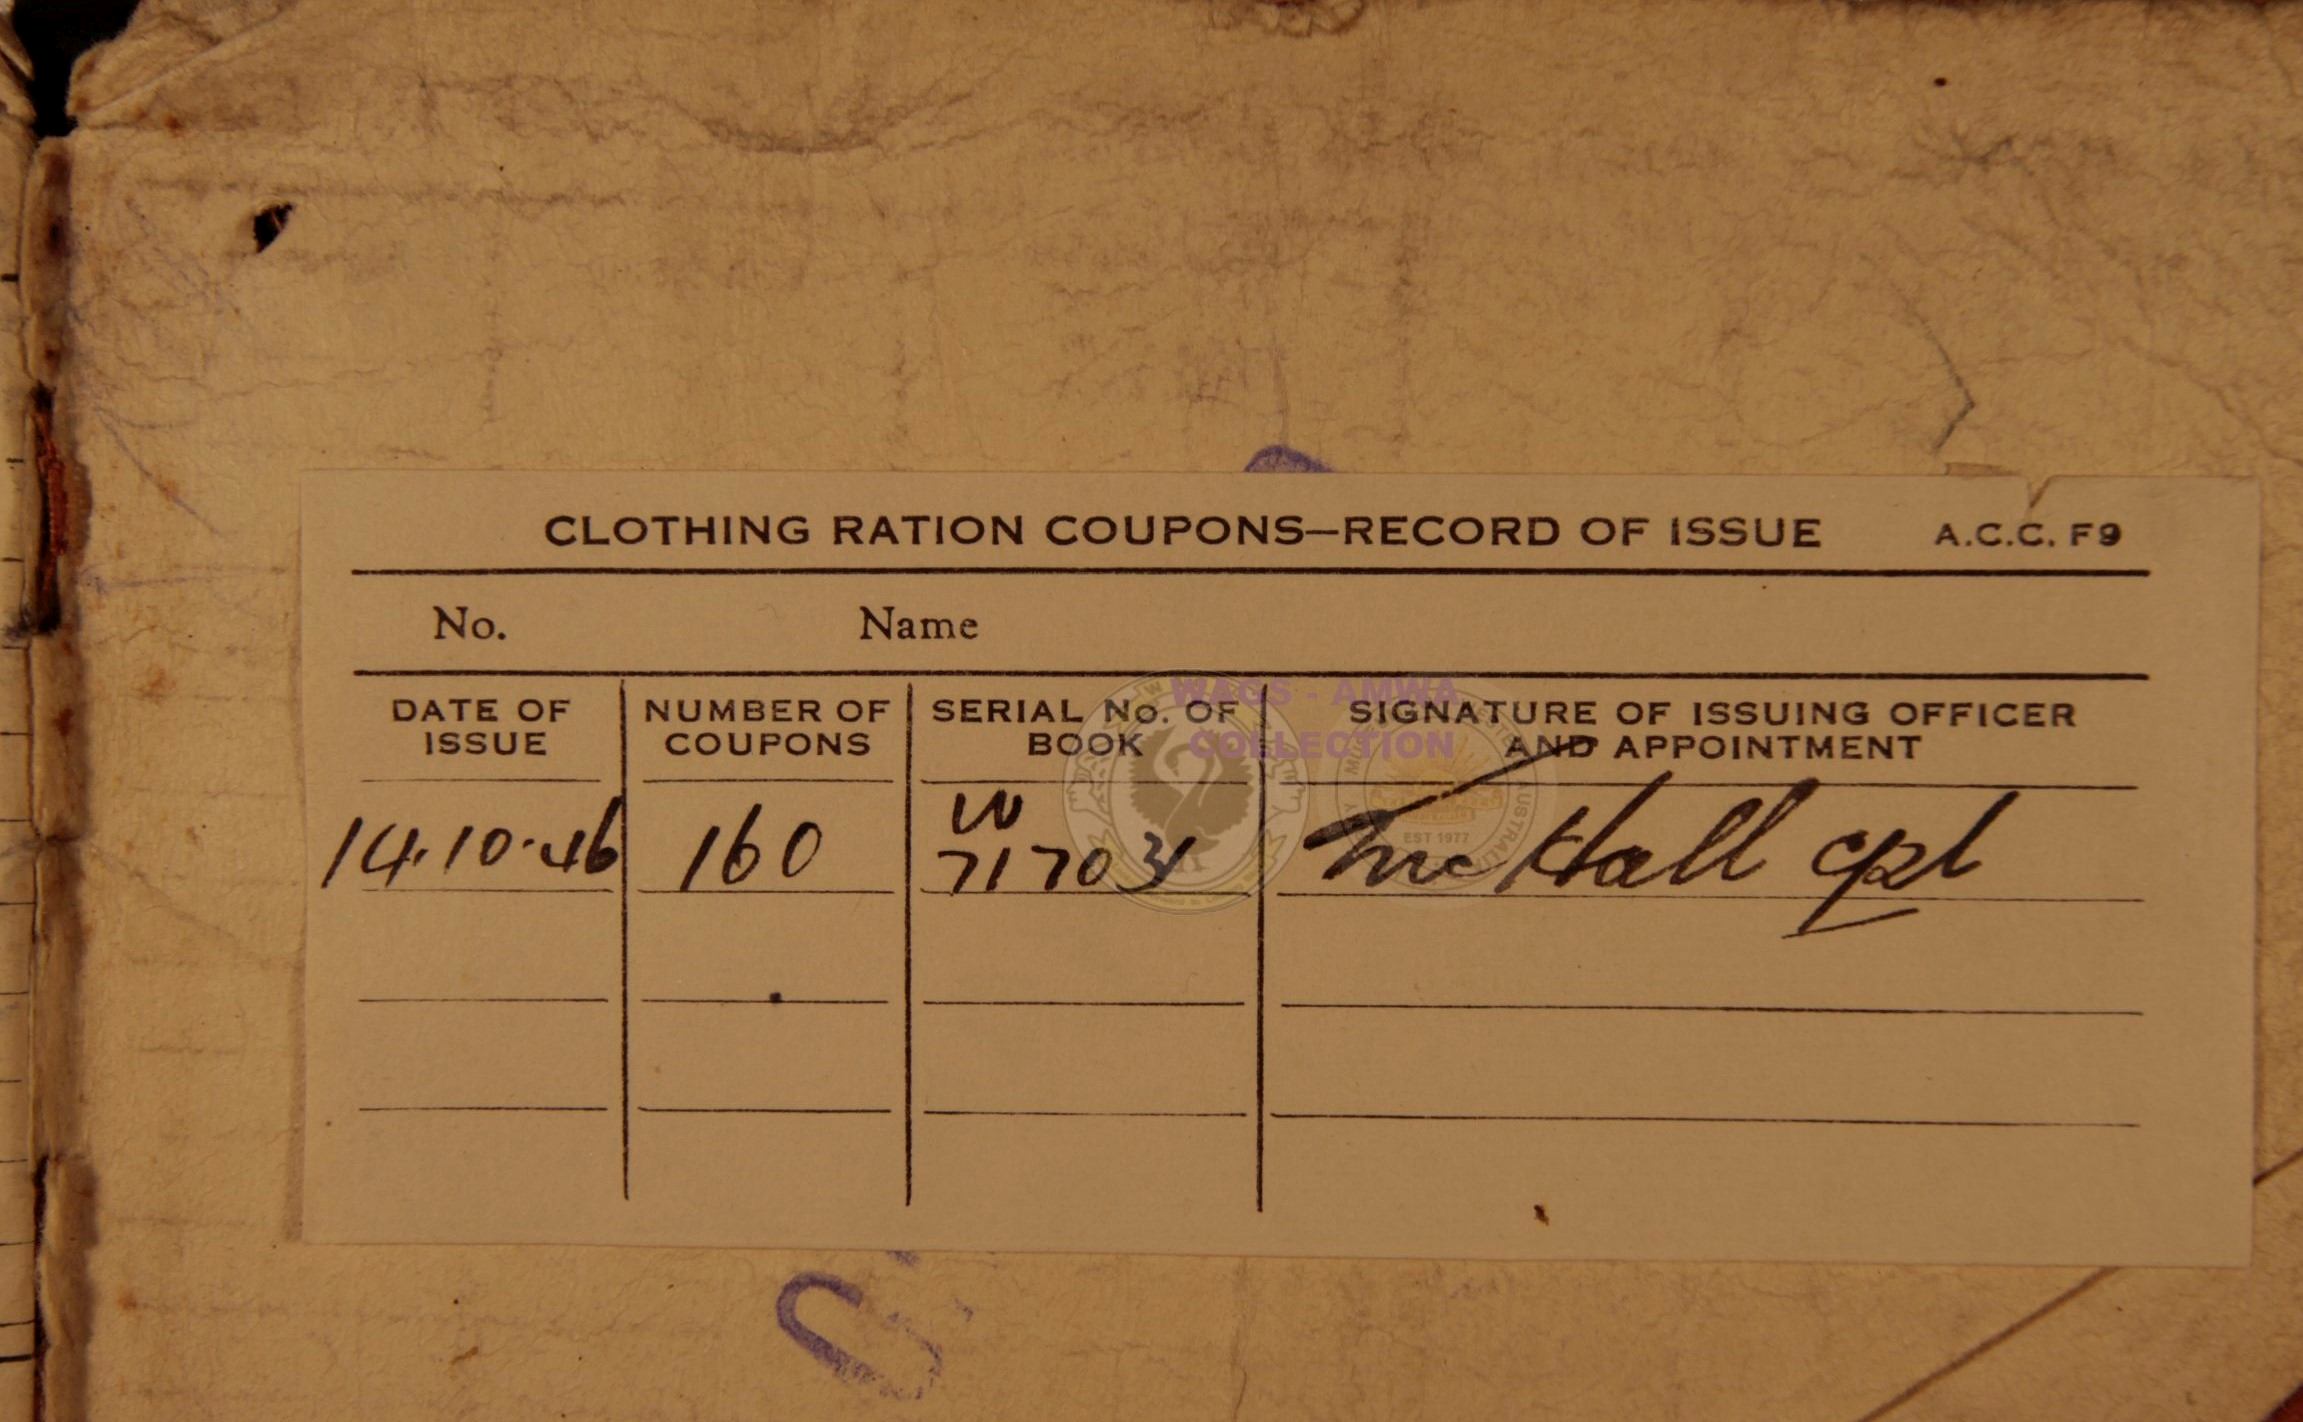 CLOTHING RATION COUPONS—RECORD OF ISSUE A.C.C. F9
No. Name
DATE OF ISSUE NUMBER OF COUPONS SERIAL No. OF BOOK SIGNATURE OF ISSUING OFFICER AND APPOINTMENT
WAGS - AMWA
COLLECTION
EST 1977
14.10.46 160 W Hall cpl